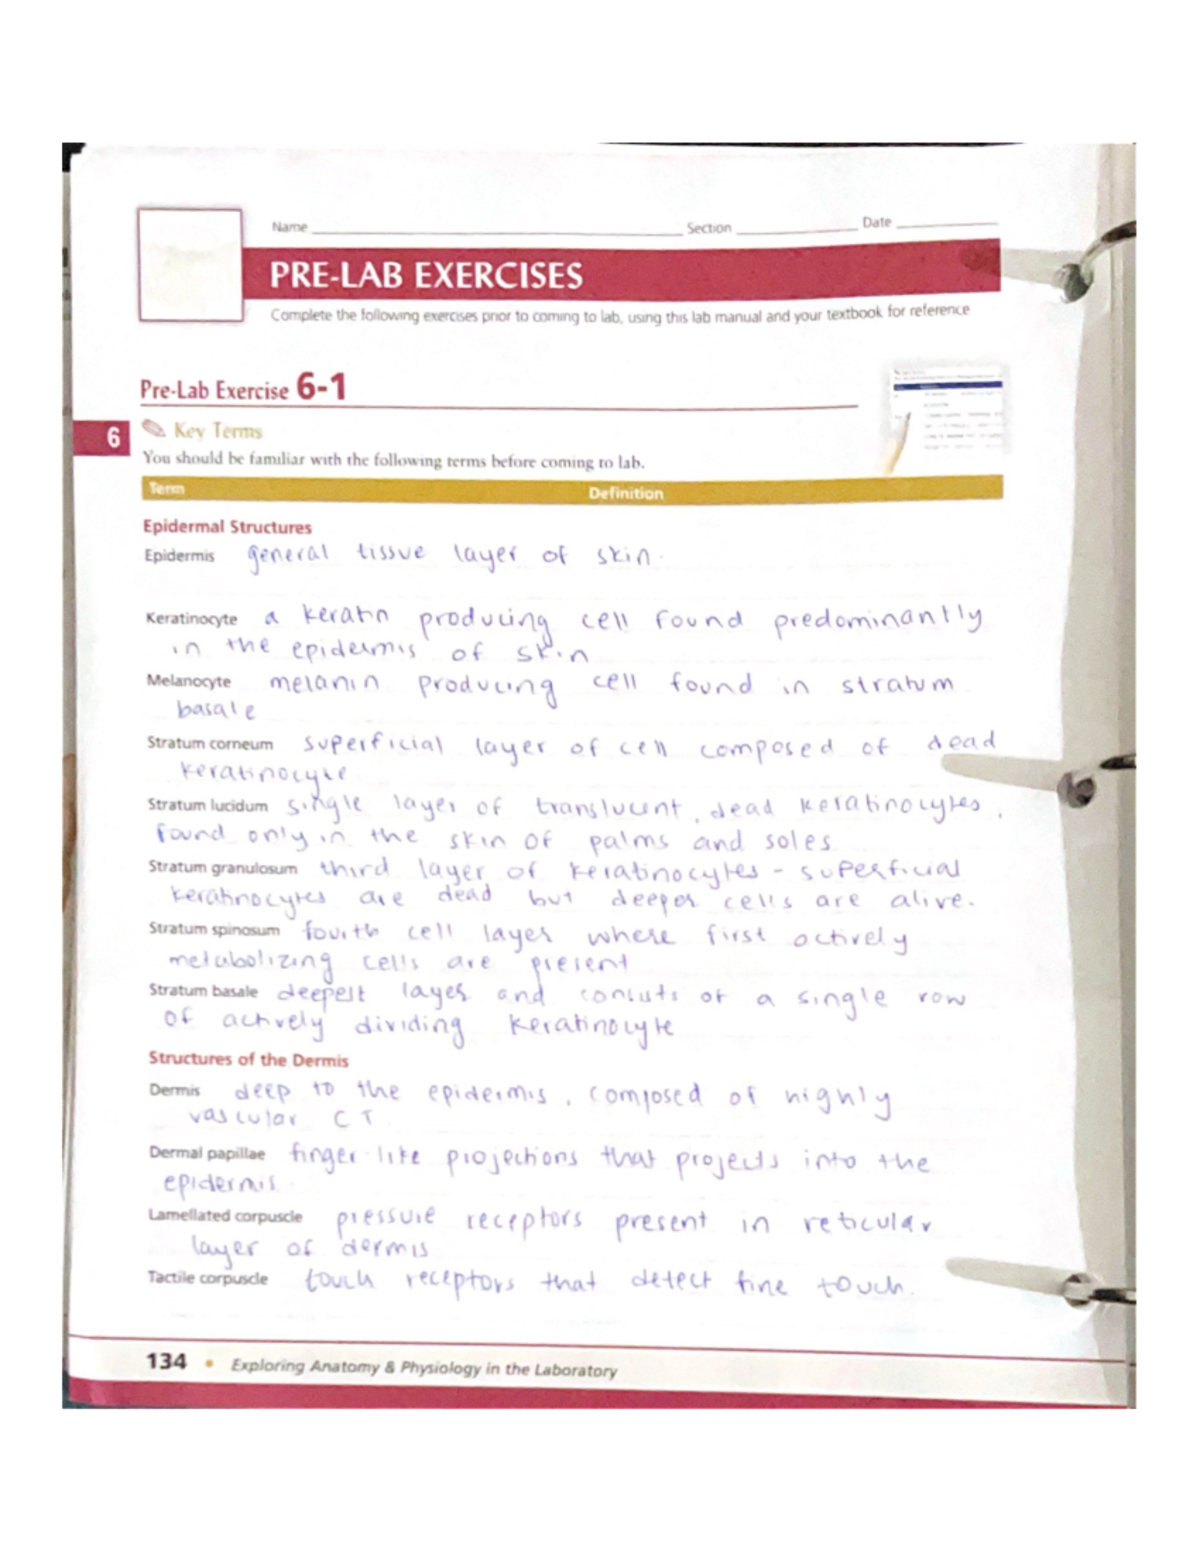 Name
Section
Date
PRE-LAB EXERCISES
Complete the following exercises prior to coming to lab, using this lab manual and your textbook for reference
Pre-Lab Exercise 6-1
6
Key Terms
You should be familiar with the following terms before coming to lab.
Term Definition
Epidermal Structures
Epidermis general tissue layer of skin.
Keratinocyte a keratin producing cell found predominantly
in the epidermis of skin
Melanocyte melanin producing cell found in stratum
basale
Stratum corneum superficial layer of cell composed of dead
keratinocyte
Stratum lucidum single layer of translucent, dead keratinocytes,
found only in the skin of palms and soles
Stratum granulosum third layer of keratinocytes - superficial
keratinocytes are dead but deeper cells are alive.
Stratum spinosum fourth cell layer where first actively
metabolizing cells are present
Stratum basale deepest layer and consists of a single row
of actively dividing keratinocyte
Structures of the Dermis
Dermis deep to the epidermis, composed of highly
vascular CT
Dermal papillae finger-like projections that projects into the
epidermis.
Lamellated corpuscle pressure receptors present in reticular
layer of dermis
Tactile corpuscle touch receptors that detect fine touch.
134 • Exploring Anatomy & Physiology in the Laboratory